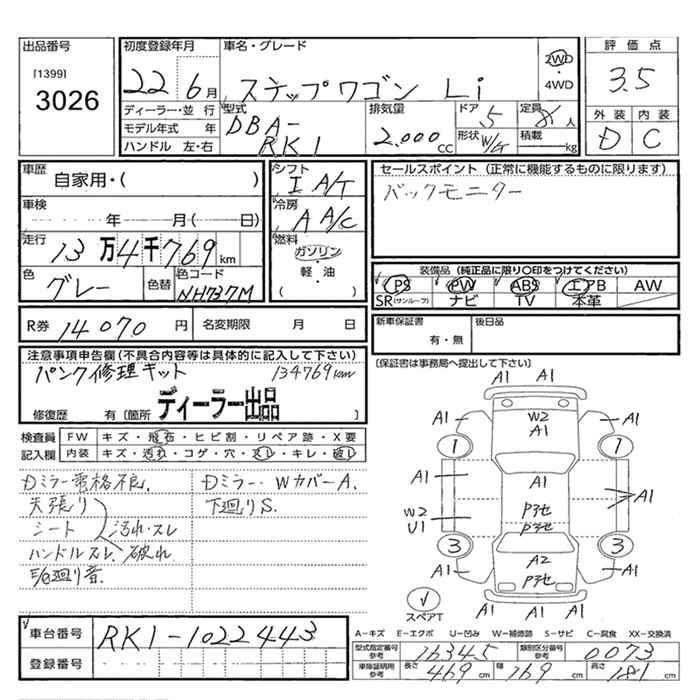 出品番号
[1399]
3026
初度登録年月
22 6月
車名・グレード
ステップワゴン Li
2WD
4WD
評価点
3.5
外装 内装
D C
ディーラー・並行
モデル年式 年
ハンドル 左・右
型式
DBA-
RK1
排気量
2.000cc
ドア
5
定員
8人
形状 W/G
積載 kg
車歴
自家用・( )
車検
年 月( 日)
走行
13万4千769km
色
グレー
色替
色コード
NH737M
シフト
I A/T
冷房
A A/C
燃料
ガソリン
軽・油
( )
セールスポイント(正常に機能するものに限ります)
バックモニター
装備品(純正品に限り〇印をつけてください)
PS PW ABS エアB AW
SR(サンルーフ) ナビ TV 本革
R券 14070円
名変期限 月 日
新車保証書
有・無
後日品
(保証書は事務局へ提出して下さい)
注意事項申告欄(不具合内容等は具体的に記入して下さい)
パンク修理キット 134769km
修復歴 有〔箇所 ディーラー出品 〕
検査員
記入欄
FW キズ・飛石・ヒビ割・リペア跡・X要
内装 キズ・汚れ・コゲ・穴・スレ・キレ・破れ
Dミラー常格不良.
天張り
シート
汚れ・スレ
ハンドルスレ、破れ
E/G廻り音.
Dミラー・WカバーA.
下廻りS.
A1 A1
A1
A1
W2
A1
1
1
A1
A1
A1
W2
U1
Pヌ他
Pヌ他
3
3
A1
A2
Pヌ他
A1
A1 A1
A1
スペアT
車台番号
RK1-1022443
登録番号
A-キズ E-エクボ U-凹み W-補修跡 S-サビ C-腐食 XX-交換済
型式指定番号
参考
16345
類別区分番号
参考
0073
車庫証明用
参考
長さ 469cm
幅 169cm
高さ 181cm